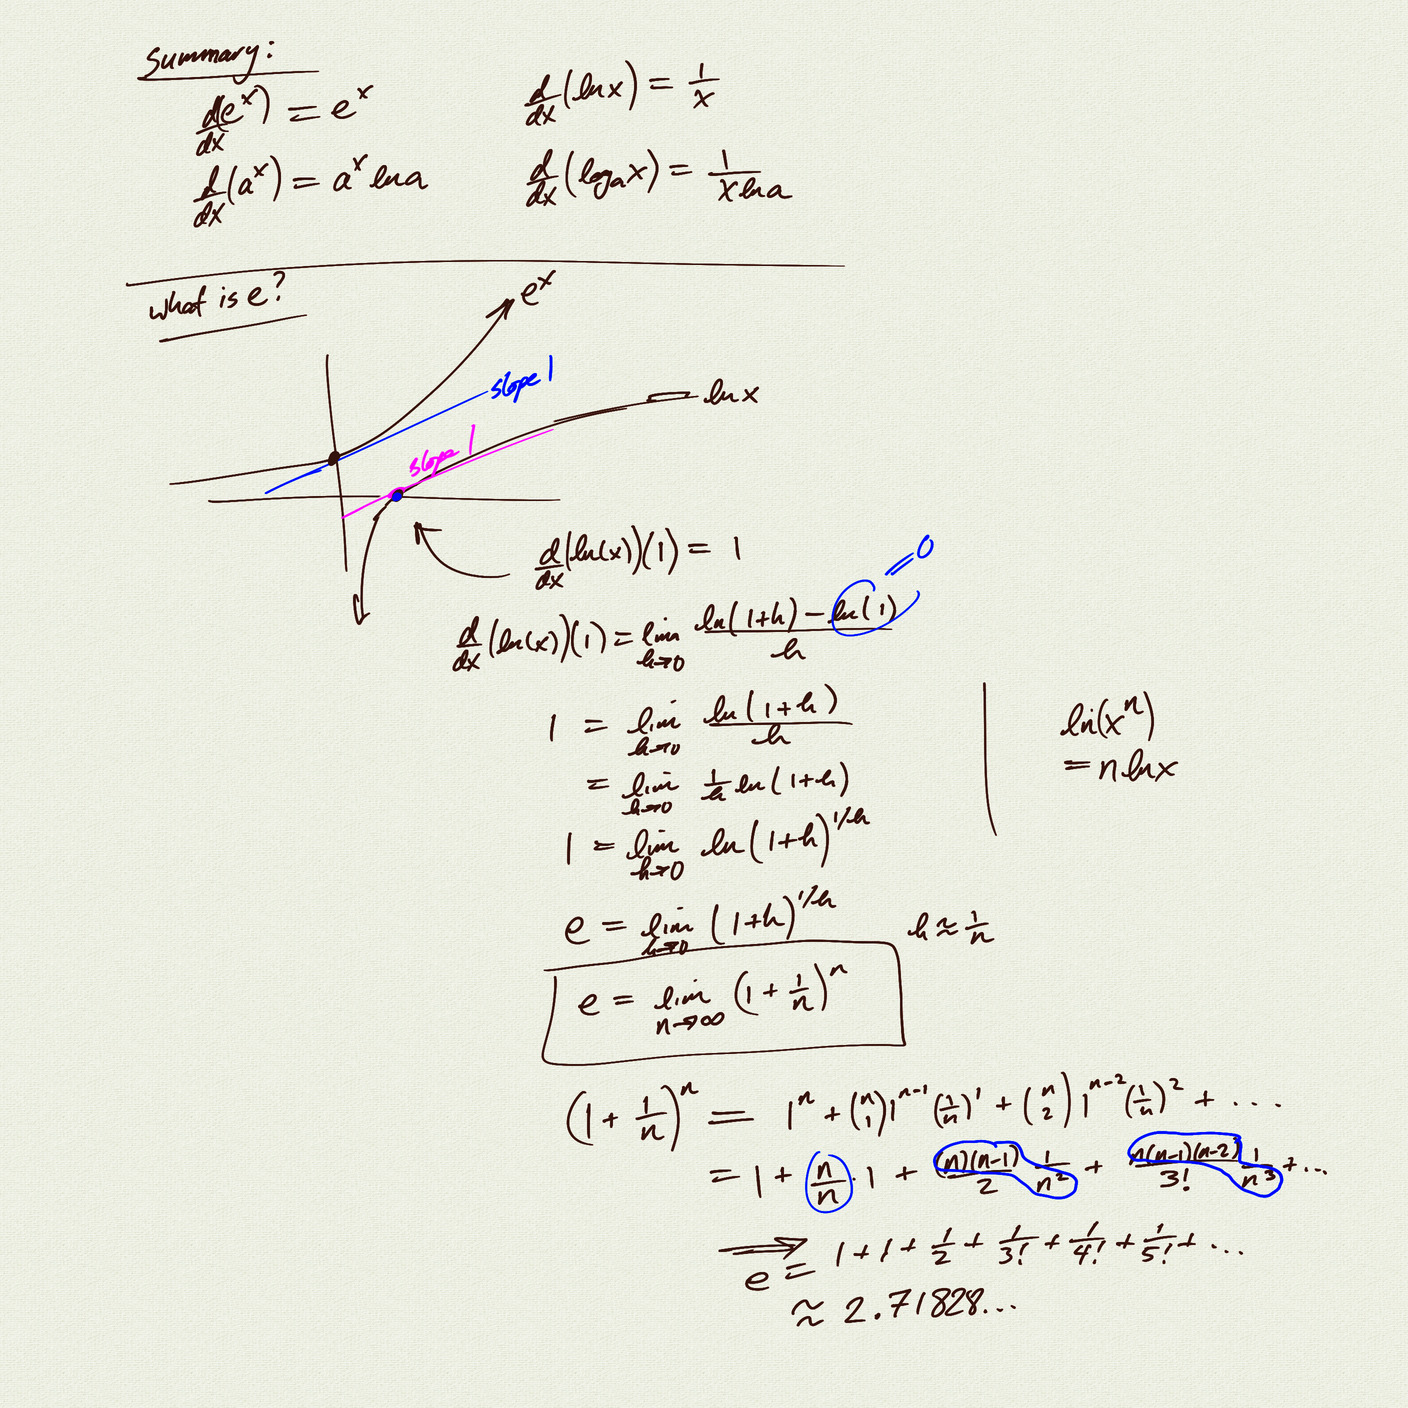 Summary:
d/dx(e^x) = e^x    d/dx(ln x) = 1/x
d/dx(a^x) = a^x ln a    d/dx(log_a x) = 1/(x ln a)
What is e?
e^x
slope 1
ln x
slope 1
d/dx(ln(x))(1) = 1
= 0
d/dx(ln(x))(1) = lim_{h→0} (ln(1+h) - ln(1))/h
1 = lim_{h→0} ln(1+h)/h
= lim_{h→0} 1/h ln(1+h)
1 = lim_{h→0} ln(1+h)^{1/h}
ln(x^n)
= n ln x
e = lim_{h→0} (1+h)^{1/h}    h ≈ 1/n
e = lim_{n→∞} (1 + 1/n)^n
(1 + 1/n)^n = 1^n + (n 1) 1^{n-1} (1/n)^1 + (n 2) 1^{n-2} (1/n)^2 + ....
= 1 + n/n · 1 + (n)(n-1)/2 1/n^2 + n(n-1)(n-2)/3! 1/n^3 + ...
⇒ e = 1 + 1 + 1/2 + 1/3! + 1/4! + 1/5! + ...
≈ 2.71828...